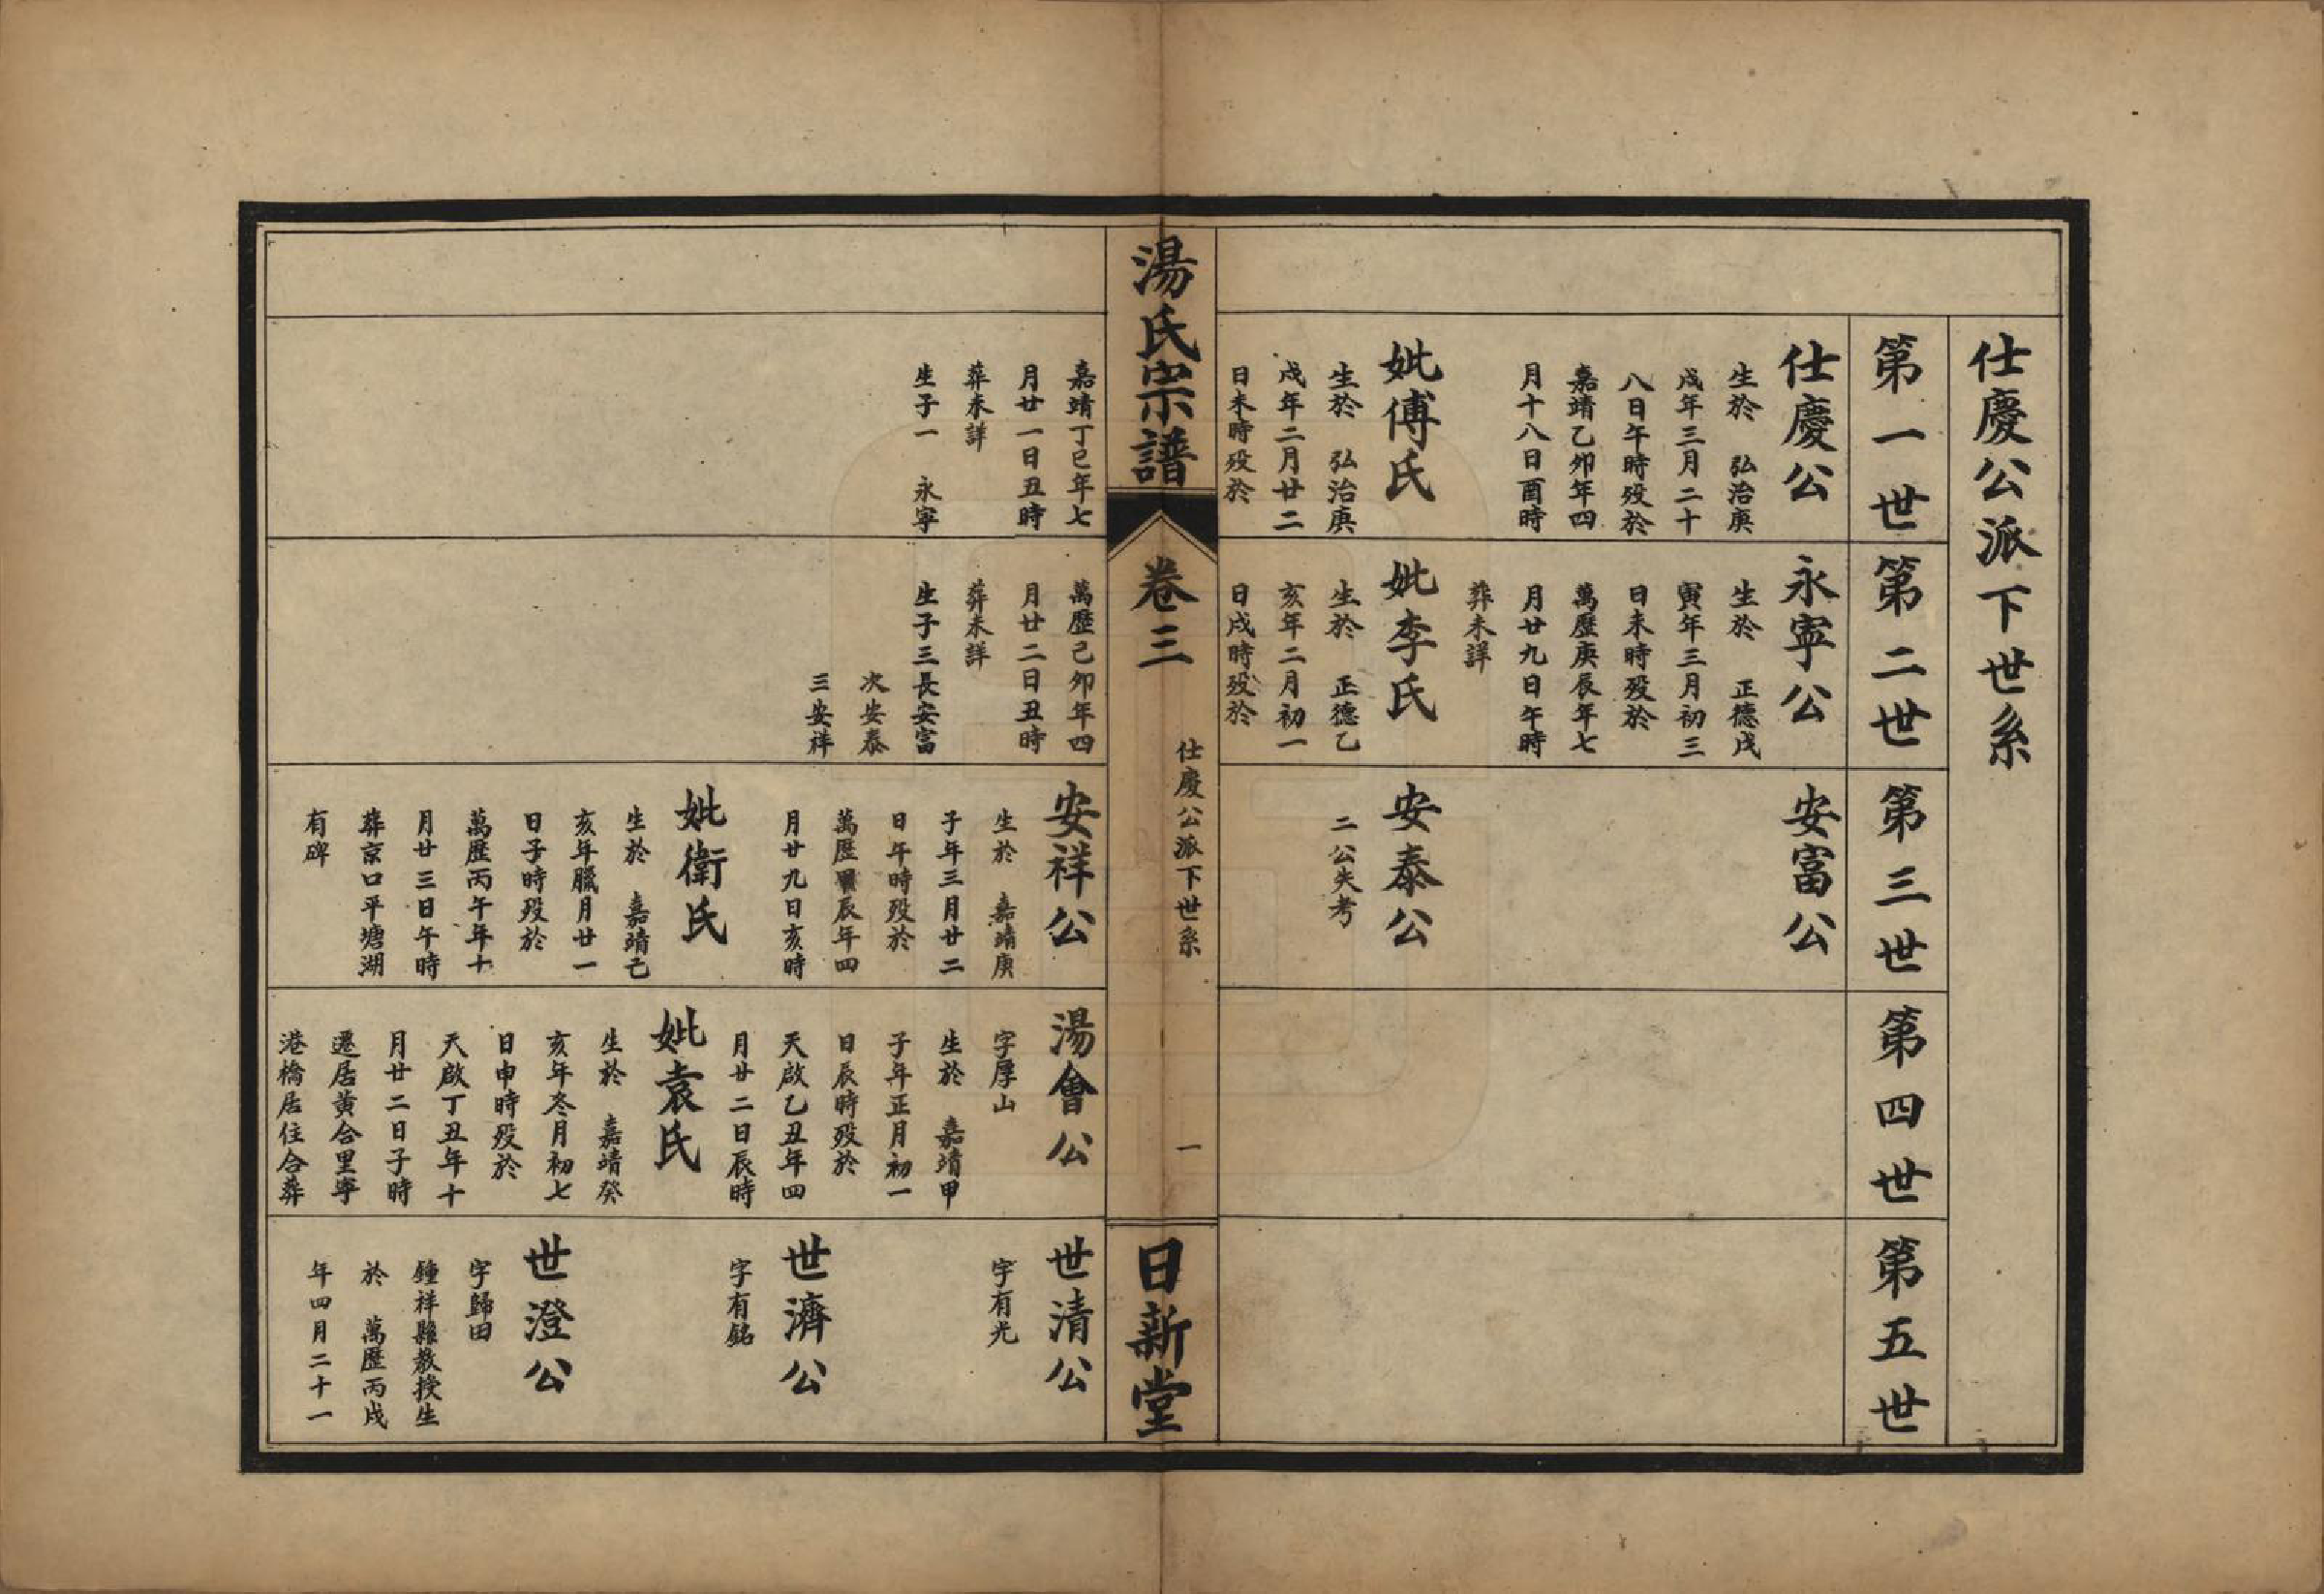 仕慶公派下世系
第一世
第二世
第三世
第四世
第五世
仕慶公
生於 弘治庚
戌年三月二十
八日午時殁於
嘉靖乙卯年四
月十八日酉時
妣傅氏
生於 弘治庚
戌年二月廿二
日未時殁於
永寧公
生於 正德戊
寅年三月初三
日未時殁於
萬歷庚辰年七
月廿九日午時
葬未詳
妣李氏
生於 正德乙
亥年二月初一
日戌時殁於
安富公
安泰公
二公失考
湯氏宗譜
卷三
仕慶公派下世系
一
日新堂
嘉靖丁巳年七
月廿一日丑時
葬未詳
生子一 永寧
萬歷己卯年四
月廿二日丑時
葬未詳
生子三長安富
次安泰
三安祥
安祥公
生於 嘉靖庚
子年三月廿二
日午時殁於
萬歷甲辰年四
月廿九日亥時
妣衛氏
生於 嘉靖己
亥年臘月廿一
日子時殁於
萬歷丙午年十
月廿三日午時
葬京口平塘湖
有碑
湯會公
字厚山
生於 嘉靖甲
子年正月初一
日辰時殁於
天啟乙丑年四
月廿二日辰時
妣袁氏
生於 嘉靖癸
亥年冬月初七
日申時殁於
天啟丁丑年十
月廿二日子時
遷居黃合里寧
港橋居住合葬
世清公
字有光
世濟公
字有銘
世澄公
字歸田
鍾祥縣教授生
於 萬歷丙戌
年四月二十一